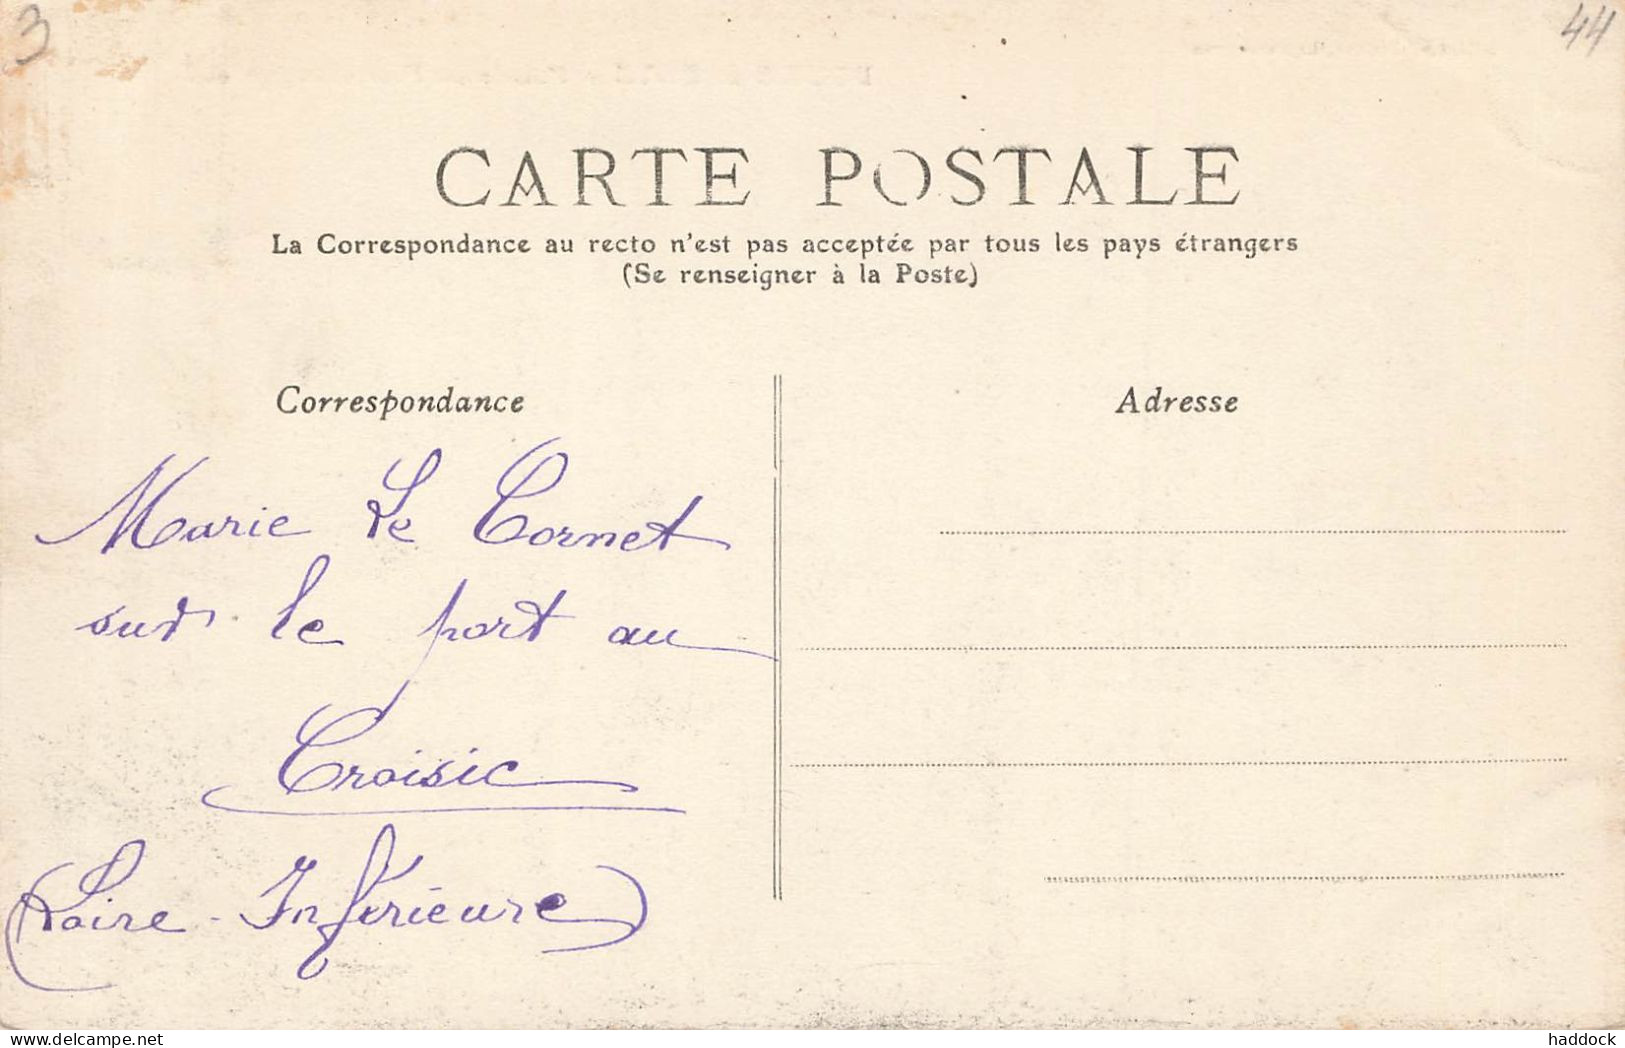 3
44
CARTE POSTALE
La Correspondance au recto n'est pas acceptée par tous les pays étrangers
(Se renseigner à la Poste)
Correspondance
Adresse
Marie Le Cornet
sur le port au
Croisic
(Loire-Inférieure)
delcampe.net
haddock